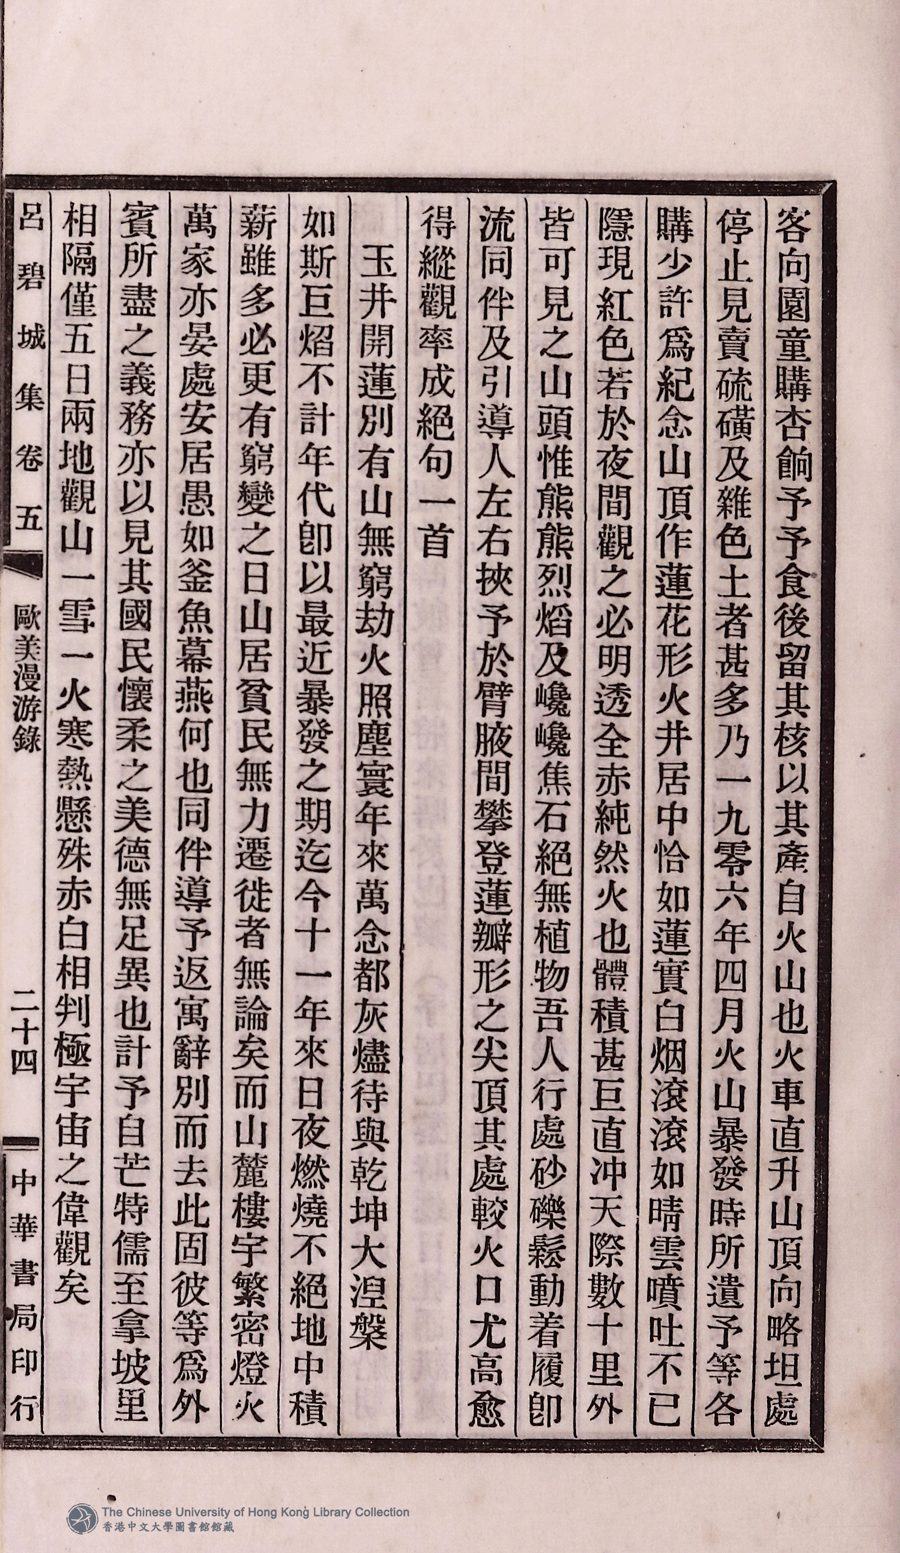 客向園童購杏餉予予食後留其核以其產自火山也火車直升山頂向略坦處
停止見賣硫磺及雜色土者甚多乃一九零六年四月火山暴發時所遺予等各
購少許爲紀念山頂作蓮花形火井居中恰如蓮實白烟滾滾如晴雲噴吐不已
隱現紅色若於夜間觀之必明透全赤純然火也體積甚巨直冲天際數十里外
皆可見之山頭惟熊熊烈熖及巉巉焦石絕無植物吾人行處砂礫鬆動着履卽
流同伴及引導人左右挾予於臂腋間攀登蓮瓣形之尖頂其處較火口尤高愈
得縱觀率成絕句一首
玉井開蓮別有山無窮劫火照塵寰年來萬念都灰燼待與乾坤大湼槃
如斯巨熖不計年代卽以最近暴發之期迄今十一年來日夜燃燒不絕地中積
薪雖多必更有窮變之日山居貧民無力遷徙者無論矣而山麓樓宇繁密燈火
萬家亦晏處安居愚如釜魚幕燕何也同伴導予返寓辭別而去此固彼等爲外
賓所盡之義務亦以見其國民懷柔之美德無足異也計予自芒特儒至拿坡里
相隔僅五日兩地觀山一雪一火寒熱懸殊赤白相判極宇宙之偉觀矣
呂碧城集卷五
歐美漫游錄
二十四
中華書局印行
The Chinese University of Hong Kong Library Collection
香港中文大學圖書館館藏